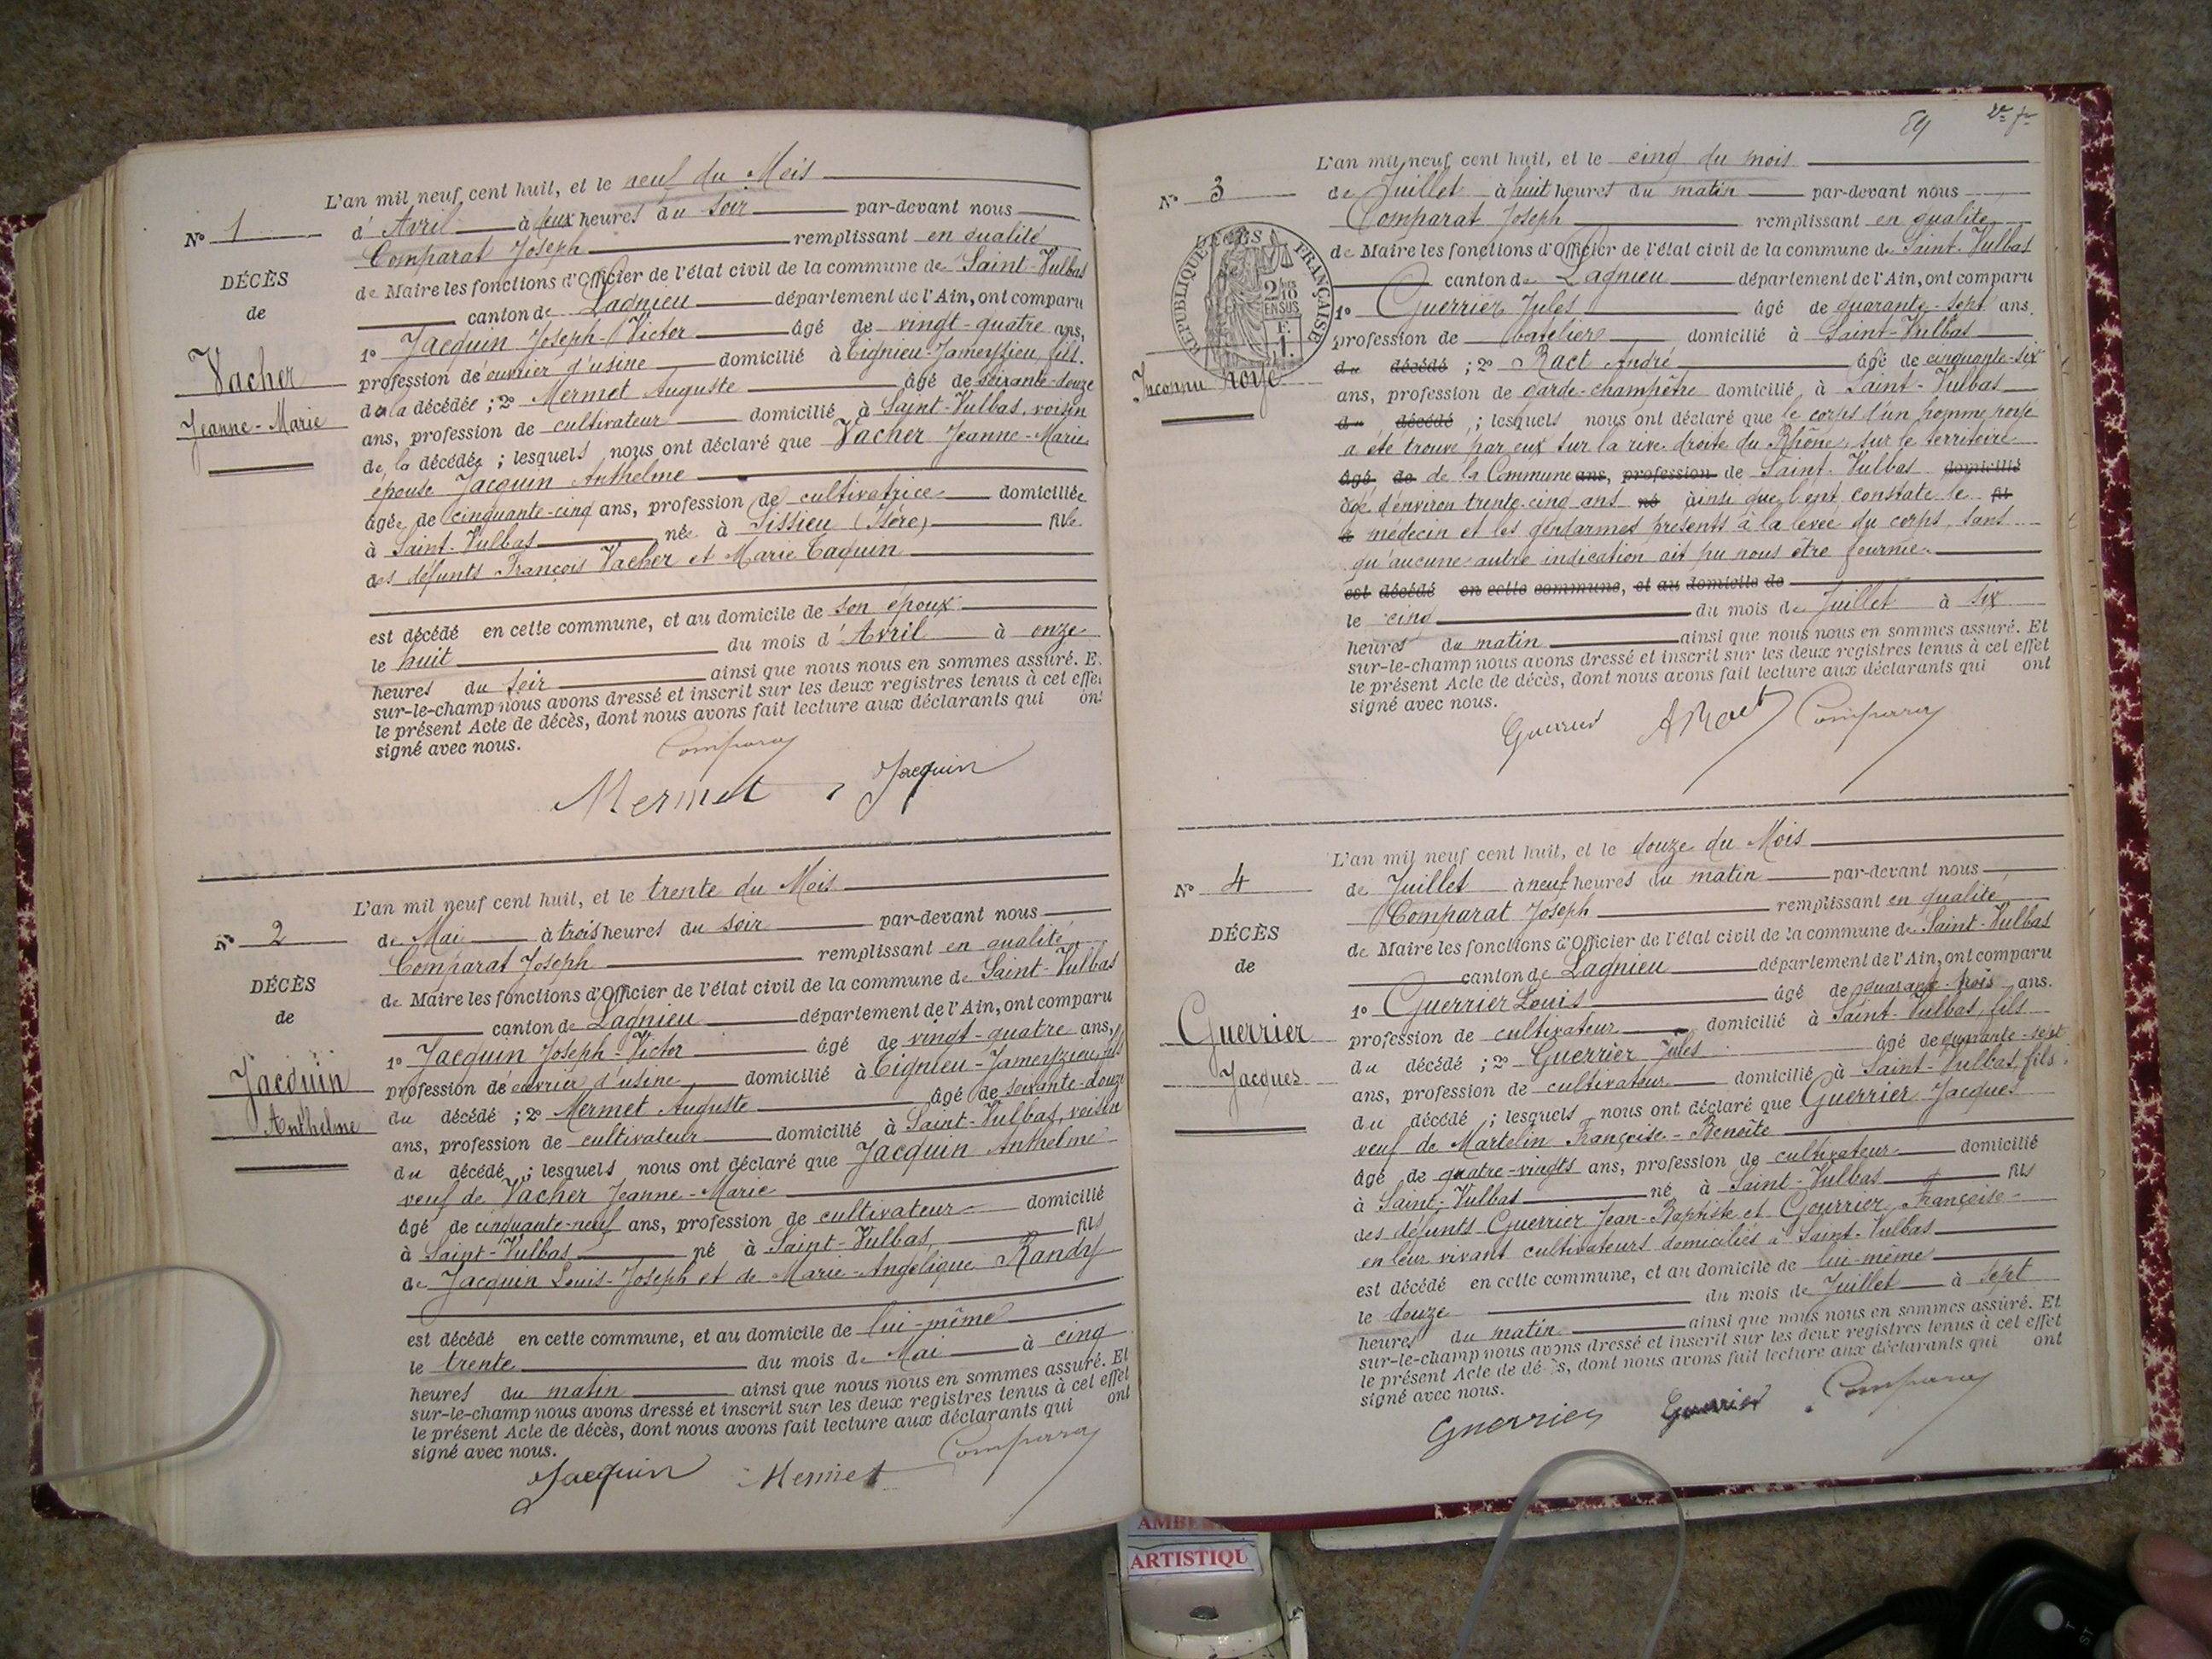 L'an mil neuf cent huit, et le neuf du Mois
N° 1
d'Avril à deux heures du soir par-devant nous
Comparat Joseph remplissant en qualité
DÉCÈS
de Maire les fonctions d'Officier de l'état civil de la commune de Saint-Vulbas
de
canton de Lagnieu département de l'Ain, ont comparu
1° Jacquin Joseph-Victor âgé de vingt-quatre ans,
Vacher
profession de ouvrier d'usine domicilié à Tignieu-Jameyzieu, fils
de la décédée ; 2° Mermet Auguste âgé de soixante-douze
Jeanne-Marie
ans, profession de cultivateur domicilié à Saint-Vulbas, voisin
de la décédée ; lesquels nous ont déclaré que Vacher Jeanne-Marie
épouse Jacquin Anthelme
âgée de cinquante-cinq ans, profession de cultivatrice domiciliée
à Saint-Vulbas née à Sissieu (Isère) fille
des défunts François Vacher et Marie Taquin
est décédé en cette commune, et au domicile de son époux
le huit du mois d'Avril à onze
heures du soir ainsi que nous nous en sommes assuré. E
sur-le-champ nous avons dressé et inscrit sur les deux registres tenus à cet effet
le présent Acte de décès, dont nous avons fait lecture aux déclarants qui ont
signé avec nous.
Comparat
Mermet Jacquin
L'an mil neuf cent huit, et le trente du Mois
N° 2
de Mai à trois heures du soir par-devant nous
Comparat Joseph remplissant en qualité
DÉCÈS
de Maire les fonctions d'Officier de l'état civil de la commune de Saint-Vulbas
de
canton de Lagnieu département de l'Ain, ont comparu
1° Jacquin Joseph-Victor âgé de vingt-quatre ans,
Jacquin
profession de ouvrier d'usine domicilié à Tignieu-Jameyzieu, fils
du décédé ; 2° Mermet Auguste âgé de soixante-douze
Anthelme
ans, profession de cultivateur domicilié à Saint-Vulbas, voisin
du décédé ; lesquels nous ont déclaré que Jacquin Anthelme
veuf de Vacher Jeanne-Marie
âgé de cinquante-neuf ans, profession de cultivateur domicilié
à Saint-Vulbas né à Saint-Vulbas fils
de Jacquin Louis-Joseph et de Marie-Angélique Randy
est décédé en cette commune, et au domicile de lui-même
le trente du mois de Mai à cinq
heures du matin ainsi que nous nous en sommes assuré. Et
sur-le-champ nous avons dressé et inscrit sur les deux registres tenus à cet effet
le présent Acte de décès, dont nous avons fait lecture aux déclarants qui ont
signé avec nous.
Comparat
Jacquin Mermet
L'an mil neuf cent huit, et le cinq du mois
N° 3
de Juillet à huit heures du matin par-devant nous
Comparat Joseph remplissant en qualité
de Maire les fonctions d'Officier de l'état civil de la commune de Saint-Vulbas
RÉPUBLIQUE FRANÇAISE
canton de Lagnieu département de l'Ain, ont comparu
1° Guerrier Jules âgé de quarante-sept ans.
profession de batelier domicilié à Saint-Vulbas
du décédé ; 2° Ract André âgé de cinquante-six
Inconnu noyé
ans, profession de garde-champêtre domicilié à Saint-Vulbas
du décédé ; lesquels nous ont déclaré que le corps d'un homme noyé
a été trouvé par eux sur la rive droite du Rhône, sur le territoire
âgé de de la Commune ans, profession de Saint-Vulbas domicilié
âgé d'environ trente-cinq ans né ainsi que l'ont constaté le fils
à médecin et les gendarmes présents à la levée du corps, sans
qu'aucune autre indication ait pu nous être fournie.
est décédé en cette commune, et au domicile de
le cinq du mois de Juillet à six
heures du matin ainsi que nous nous en sommes assuré. Et
sur-le-champ nous avons dressé et inscrit sur les deux registres tenus à cet effet
le présent Acte de décès, dont nous avons fait lecture aux déclarants qui ont
signé avec nous.
Guerrier A Ract Comparat
L'an mil neuf cent huit, et le douze du Mois
N° 4
de Juillet à neuf heures du matin par-devant nous
Comparat Joseph remplissant en qualité
DÉCÈS
de Maire les fonctions d'Officier de l'état civil de la commune de Saint-Vulbas
de
canton de Lagnieu département de l'Ain, ont comparu
1° Guerrier Louis âgé de quarante-trois ans.
Guerrier
profession de cultivateur domicilié à Saint-Vulbas, fils
du décédé ; 2° Guerrier Jules âgé de quarante-sept
Jacques
ans, profession de cultivateur domicilié à Saint-Vulbas, fils
du décédé ; lesquels nous ont déclaré que Guerrier Jacques
veuf de Martelin Françoise-Benoîte
âgé de quatre-vingts ans, profession de cultivateur domicilié
à Saint-Vulbas né à Saint-Vulbas fils
des défunts Guerrier Jean-Baptiste et Gourrier Françoise
en leur vivant cultivateurs domiciliés à Saint-Vulbas
est décédé en cette commune, et au domicile de lui-même
le douze du mois de Juillet à sept
heures du matin ainsi que nous nous en sommes assuré. Et
sur-le-champ nous avons dressé et inscrit sur les deux registres tenus à cet effet
le présent Acte de décès, dont nous avons fait lecture aux déclarants qui ont
signé avec nous.
Guerrier Guerrier Comparat
ARTISTIQU